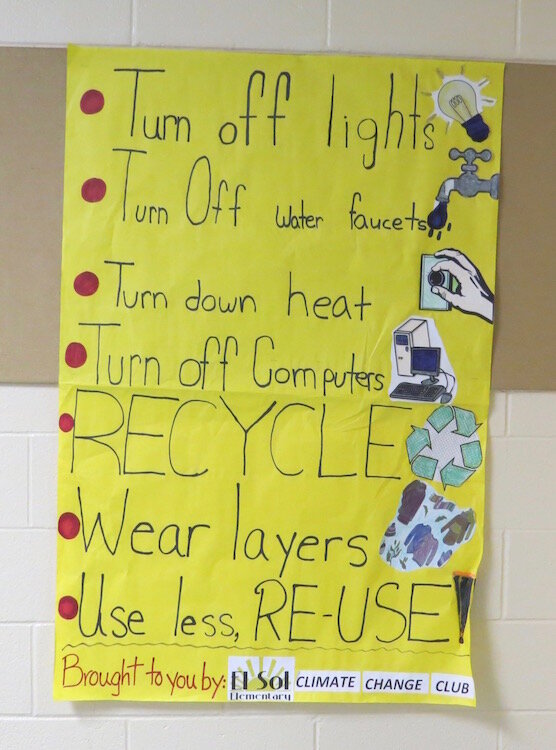 Turn off lights
Turn Off water faucets
Turn down heat
Turn off Computers
RECYCLE
Wear layers
Use less, RE-USE
Brought to you by: El Sol Elementary CLIMATE CHANGE CLUB